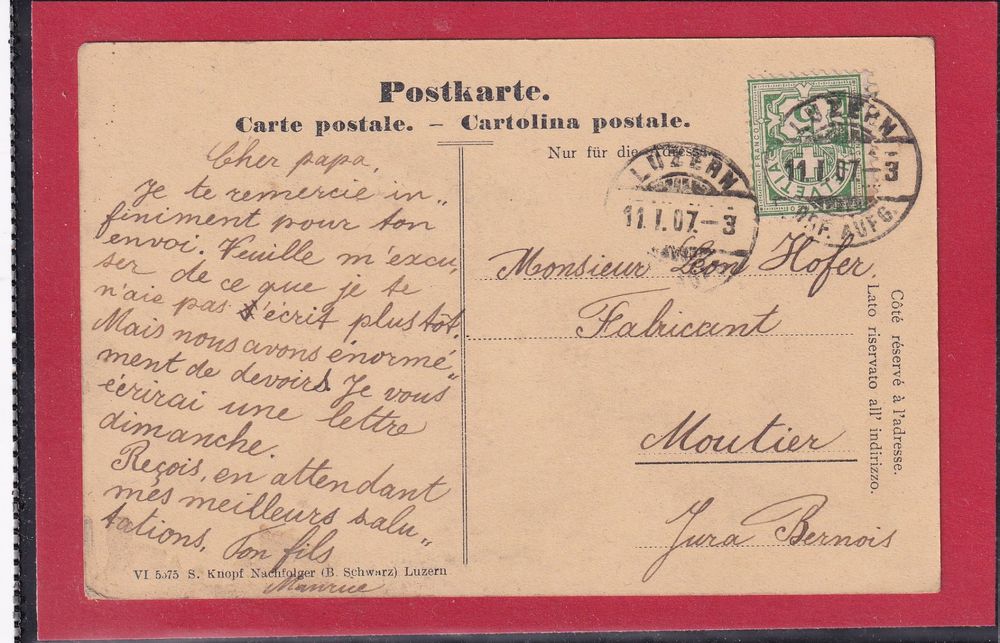 Postkarte.
Carte postale. – Cartolina postale.
Nur für die Adresse
Cher papa,
Je te remercie in„
finiment pour ton
envoi. Veuille m'excu„
ser de ce que je te
n'aie pas écrit plus tôt.
Mais nous avons énormé„
ment de devoirs. Je vous
écrirai une lettre
dimanche.
Reçois, en attendant
mes meilleurs salu„
tations. Ton fils
Maurice
VI 5575 S. Knopf Nachfolger (B. Schwarz) Luzern
LUZERN
11.I.07.-3
LUZERN
11.I.07.-3
BRF. AUFG.
FRANCO
HELVETIA
5
Monsieur Léon Hofer,
Fabricant
Moutier
Jura Bernois
Côté réservé à l'adresse.
Lato riservato all' indirizzo.